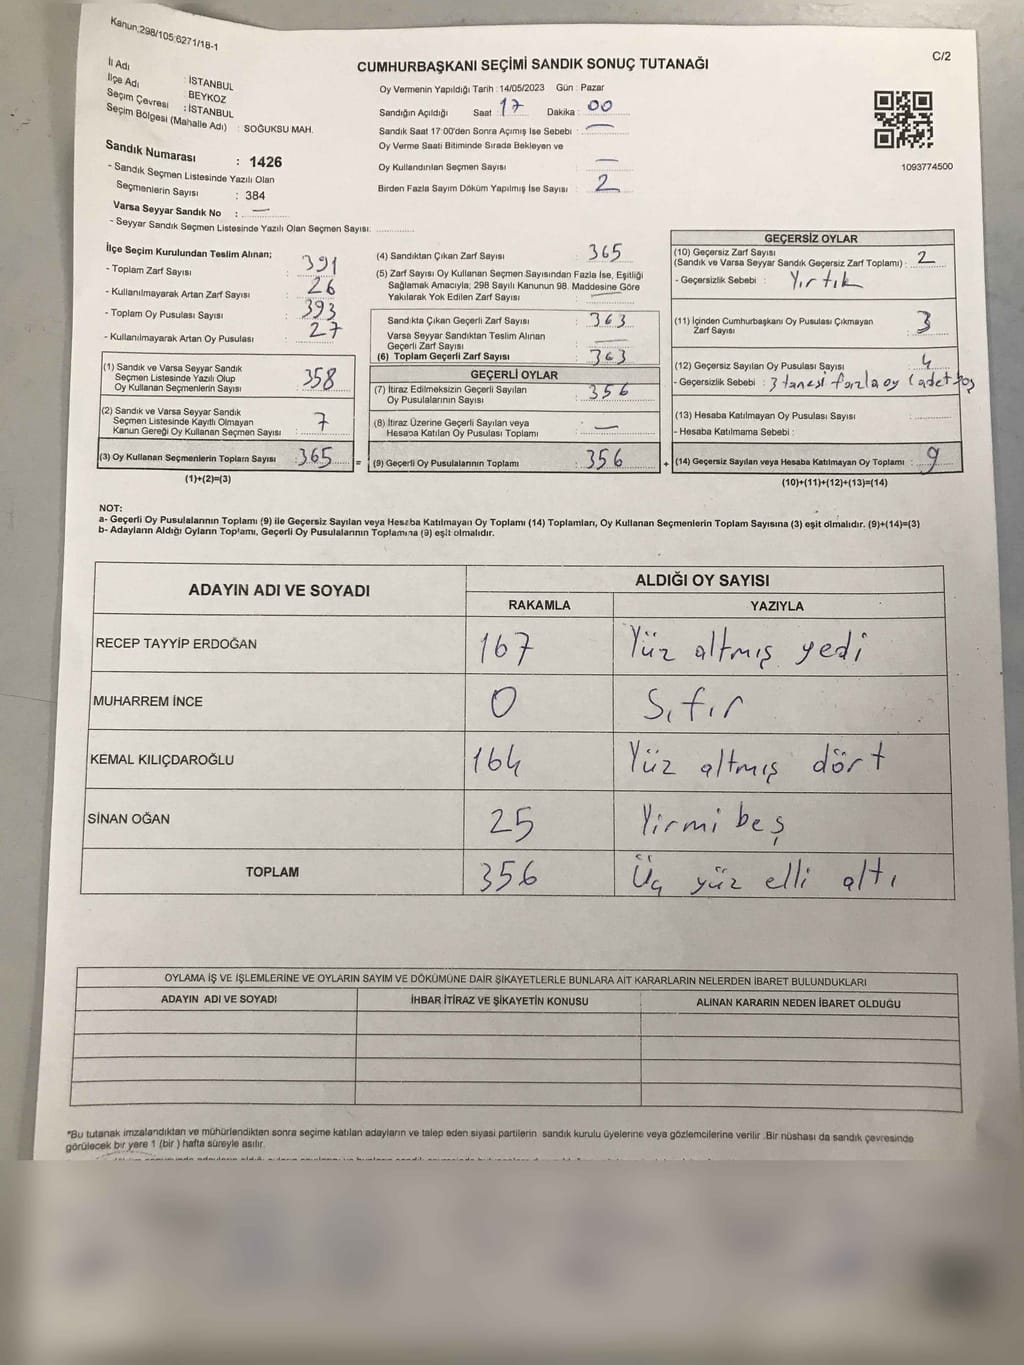 Kanun:298/105:6271/18-1
C/2
CUMHURBAŞKANI SEÇİMİ SANDIK SONUÇ TUTANAĞI
İl Adı : İSTANBUL
İlçe Adı : BEYKOZ
Seçim Çevresi : İSTANBUL
Seçim Bölgesi (Mahalle Adı) : SOĞUKSU MAH.
Sandık Numarası : 1426
- Sandık Seçmen Listesinde Yazılı Olan
Seçmenlerin Sayısı : 384
Varsa Seyyar Sandık No : —
- Seyyar Sandık Seçmen Listesinde Yazılı Olan Seçmen Sayısı:
Oy Vermenin Yapıldığı Tarih : 14/05/2023 Gün : Pazar
Sandığın Açıldığı Saat : 17 Dakika : 00
Sandık Saat 17:00'den Sonra Açımış İse Sebebi : —
Oy Verme Saati Bitiminde Sırada Bekleyen ve
Oy Kullandırılan Seçmen Sayısı : —
Birden Fazla Sayım Döküm Yapılmış İse Sayısı : 2
1093774500
İlçe Seçim Kurulundan Teslim Alınan;
- Toplam Zarf Sayısı : 391
- Kullanılmayarak Artan Zarf Sayısı : 26
- Toplam Oy Pusulası Sayısı : 393
- Kullanılmayarak Artan Oy Pusulası : 27
(1) Sandık ve Varsa Seyyar Sandık
Seçmen Listesinde Yazılı Olup
Oy Kullanan Seçmenlerin Sayısı : 358
(2) Sandık ve Varsa Seyyar Sandık
Seçmen Listesinde Kayıtlı Olmayan
Kanun Gereği Oy Kullanan Seçmen Sayısı : 7
(3) Oy Kullanan Seçmenlerin Toplam Sayısı : 365 =
(1)+(2)=(3)
(4) Sandıktan Çıkan Zarf Sayısı : 365
(5) Zarf Sayısı Oy Kullanan Seçmen Sayısından Fazla İse, Eşitliği
Sağlamak Amacıyla; 298 Sayılı Kanunun 98. Maddesine Göre
Yakılarak Yok Edilen Zarf Sayısı : —
Sandıkta Çıkan Geçerli Zarf Sayısı : 363
Varsa Seyyar Sandıktan Teslim Alınan
Geçerli Zarf Sayısı : —
(6) Toplam Geçerli Zarf Sayısı : 363
GEÇERLİ OYLAR
(7) İtiraz Edilmeksizin Geçerli Sayılan
Oy Pusulalarının Sayısı : 356
(8) İtiraz Üzerine Geçerli Sayılan veya
Hesaba Katılan Oy Pusulası Toplamı : —
(9) Geçerli Oy Pusulalarının Toplamı : 356 +
GEÇERSİZ OYLAR
(10) Geçersiz Zarf Sayısı
(Sandık ve Varsa Seyyar Sandık Geçersiz Zarf Toplamı) : 2
- Geçersizlik Sebebi : Yırtık
(11) İçinden Cumhurbaşkanı Oy Pusulası Çıkmayan
Zarf Sayısı : 3
(12) Geçersiz Sayılan Oy Pusulası Sayısı : 4
- Geçersizlik Sebebi : 3 tanesi fazla oy 1 adet boş
(13) Hesaba Katılmayan Oy Pusulası Sayısı :
- Hesaba Katılmama Sebebi :
(14) Geçersiz Sayılan veya Hesaba Katılmayan Oy Toplamı : 9
(10)+(11)+(12)+(13)=(14)
NOT:
a- Geçerli Oy Pusulalarının Toplamı (9) ile Geçersiz Sayılan veya Hesaba Katılmayan Oy Toplamı (14) Toplamları, Oy Kullanan Seçmenlerin Toplam Sayısına (3) eşit olmalıdır. (9)+(14)=(3)
b- Adayların Aldığı Oyların Toplamı, Geçerli Oy Pusulalarının Toplamına (9) eşit olmalıdır.
ADAYIN ADI VE SOYADI
ALDIĞI OY SAYISI
RAKAMLA YAZIYLA
RECEP TAYYİP ERDOĞAN 167 Yüz altmış yedi
MUHARREM İNCE 0 Sıfır
KEMAL KILIÇDAROĞLU 164 Yüz altmış dört
SİNAN OĞAN 25 Yirmi beş
TOPLAM 356 Üç yüz elli altı
OYLAMA İŞ VE İŞLEMLERİNE VE OYLARIN SAYIM VE DÖKÜMÜNE DAİR ŞİKAYETLERLE BUNLARA AİT KARARLARIN NELERDEN İBARET BULUNDUKLARI
ADAYIN ADI VE SOYADI İHBAR İTİRAZ VE ŞİKAYETİN KONUSU ALINAN KARARIN NEDEN İBARET OLDUĞU
*Bu tutanak imzalandıktan ve mühürlendikten sonra seçime katılan adayların ve talep eden siyasi partilerin sandık kurulu üyelerine veya gözlemcilerine verilir .Bir nüshası da sandık çevresinde
görülecek bir yere 1 (bir ) hafta süreyle asılır.